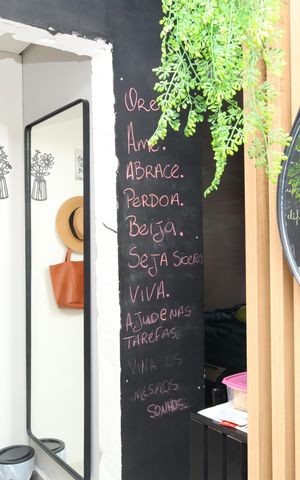 Ore
Ame.
ABRACE.
PERDOA.
Beija.
SEJA SiCERO
VIVA.
AJUDE NAS
TAREFAS.
VIVA OS
MESMOS
SONHOS.